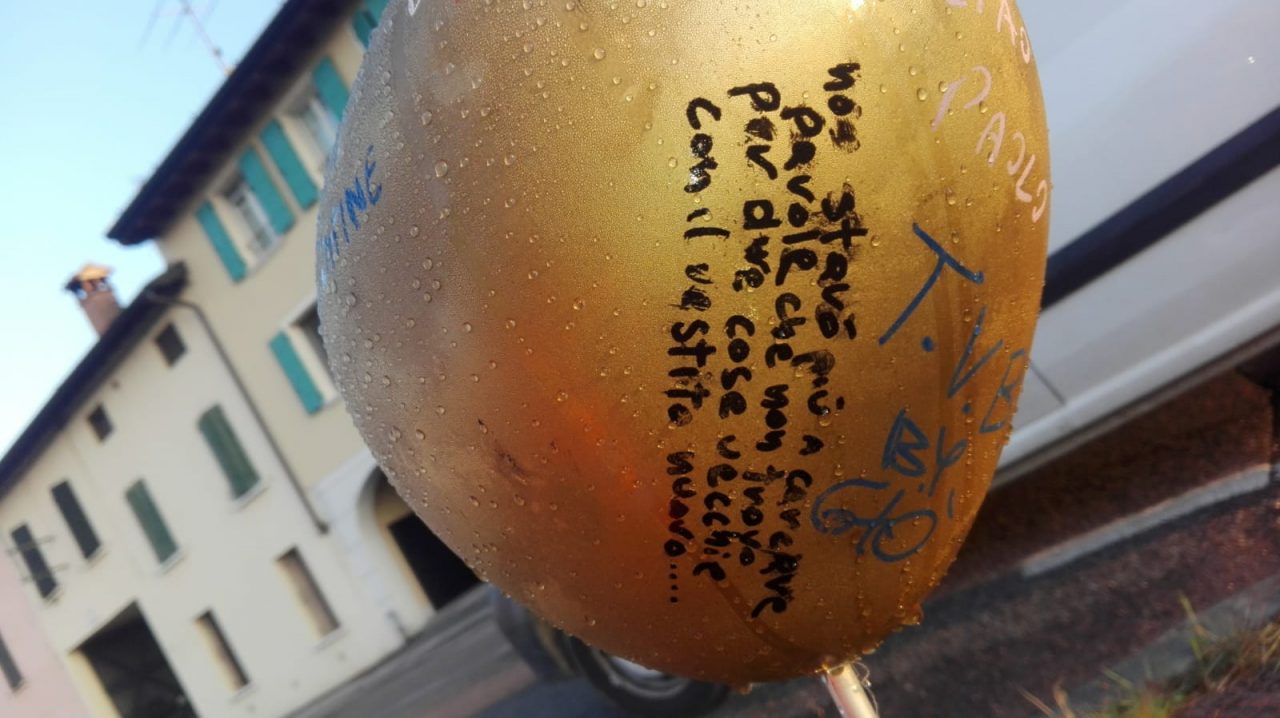 non starò più a cercare
parole che non trovo
per dire cose vecchie
con il vestito nuovo.....
PAOLO
T.V.B
By